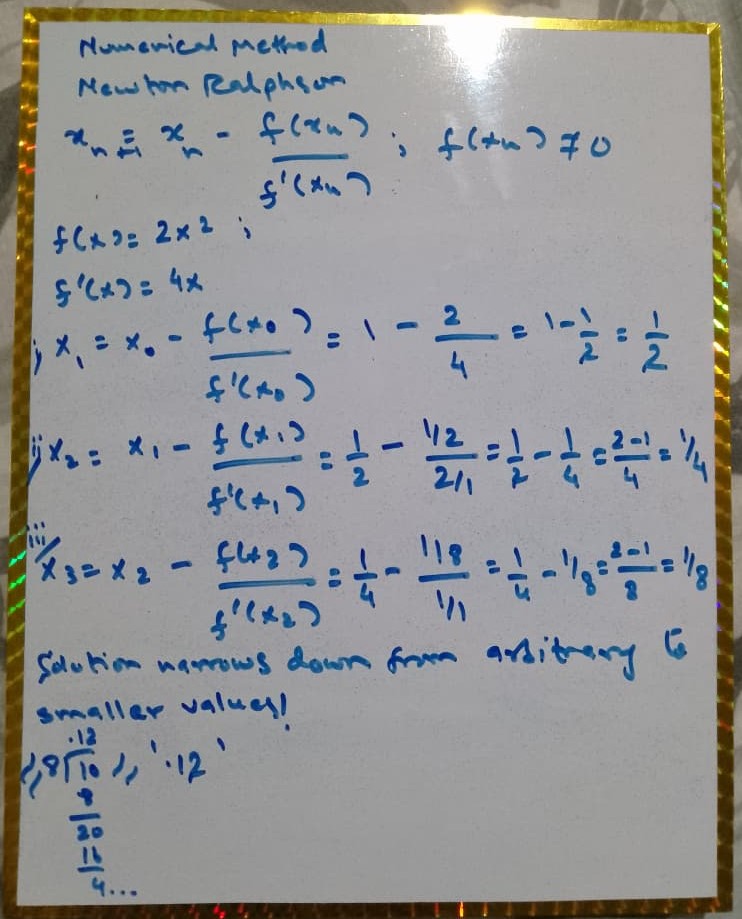 Numerical Method
Newton Ralphson
xn+1 = xn - f(xn)/f'(xn) ; f(xn) ≠ 0
f(x) = 2x² ;
f'(x) = 4x
i, x₁ = x₀ - f(x₀)/f'(x₀) = 1 - 2/4 = 1 - 1/2 = 1/2
ii, x₂ = x₁ - f(x₁)/f'(x₁) = 1/2 - (1/2)/(2/1) = 1/2 - 1/4 = (2-1)/4 = 1/4
iii, x₃ = x₂ - f(x₂)/f'(x₂) = 1/4 - (1/8)/(1/1) = 1/4 - 1/8 = (2-1)/8 = 1/8
Solution narrows down from arbitrary to
smaller values!
.12
8 ⟌10 ,, '.12'
8
20
16
4...